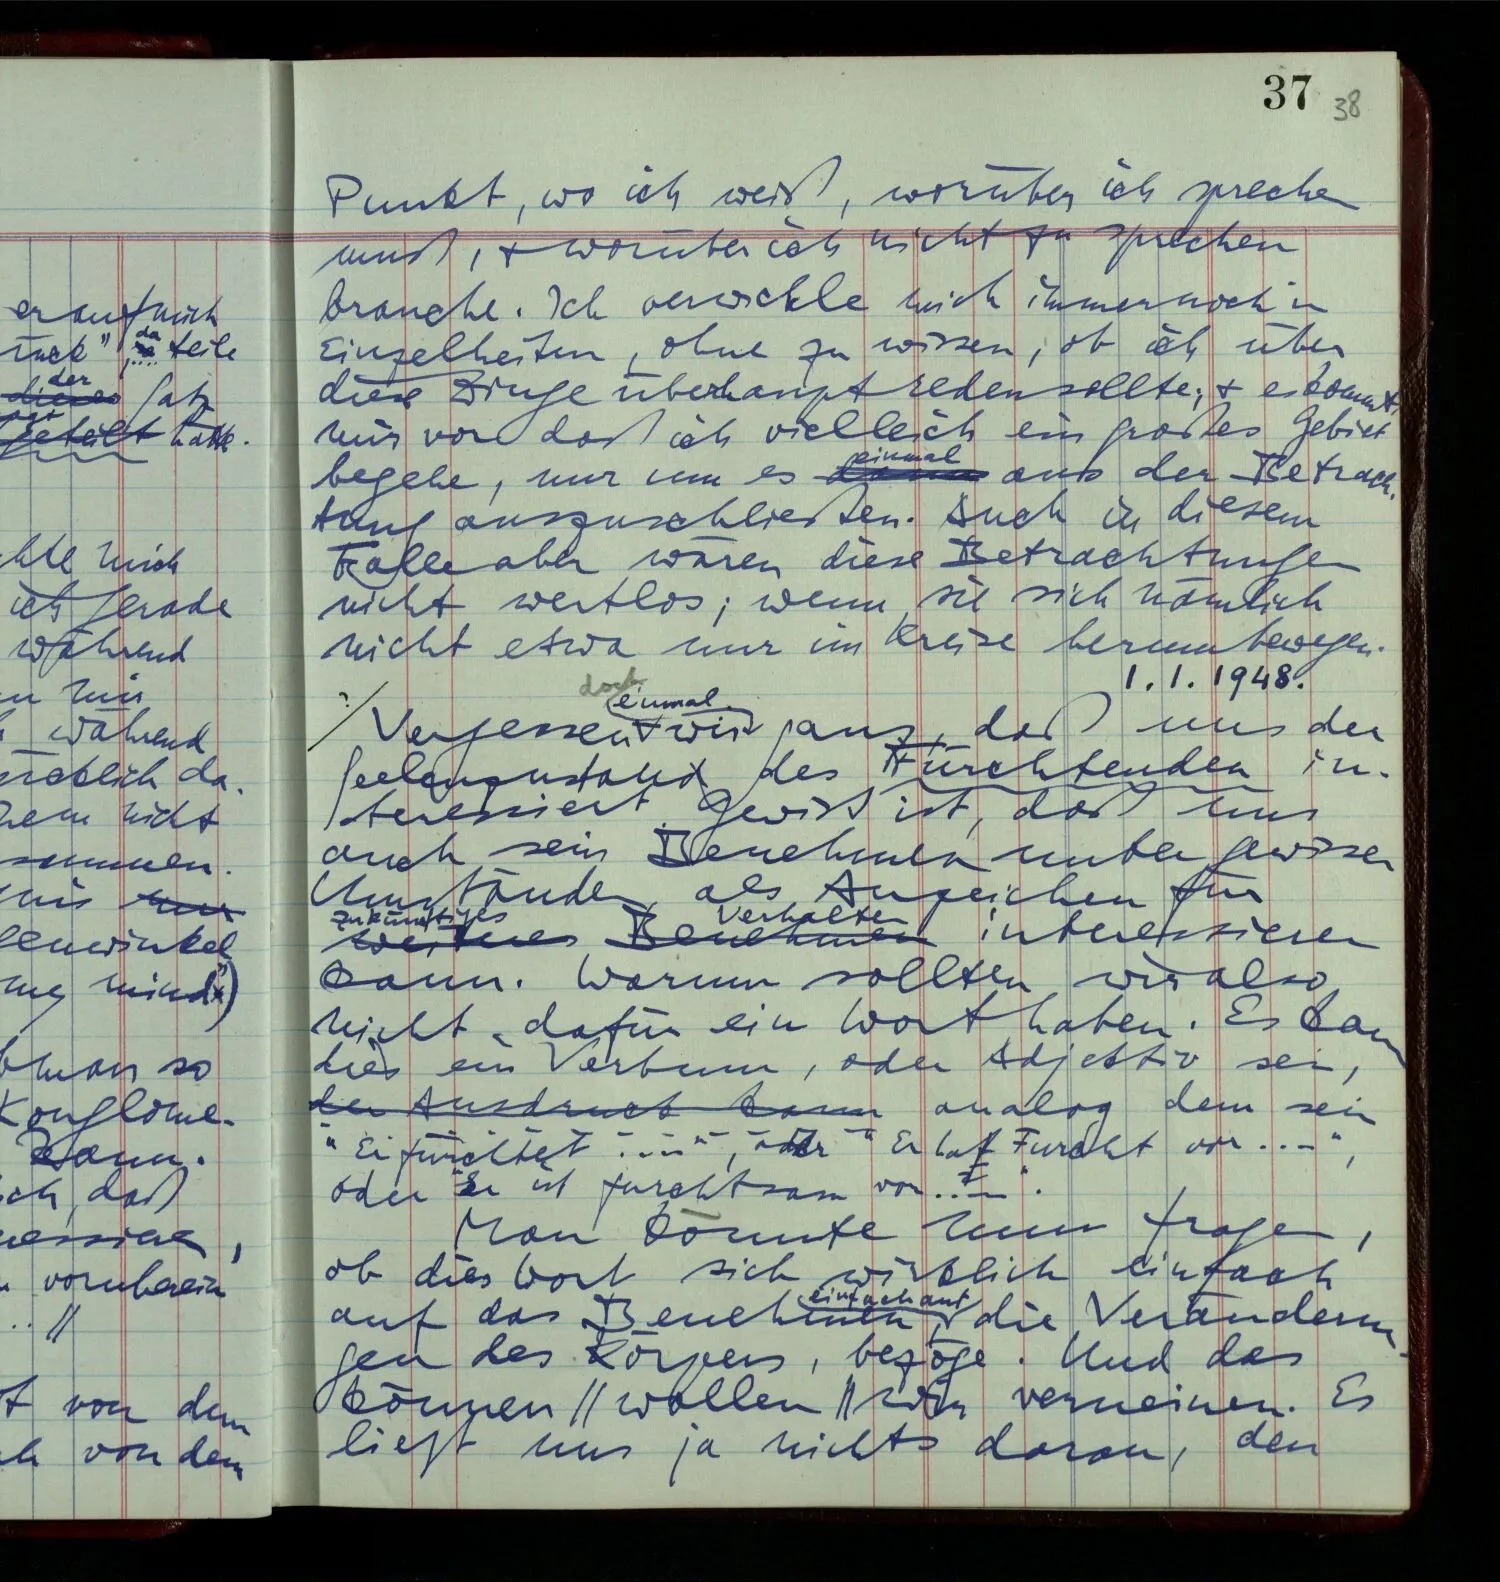 37 38
Punkt, wo ich weiß, worüber ich sprechen
muß, + worüber ich nicht zu sprechen
brauche. Ich verwickle mich immer noch in
Einzelheiten, ohne zu wissen, ob ich über
diese Dinge überhaupt reden sollte; + es kommt
mir vor daß ich vielleich ein großes Gebiet
begehe, nur um es einmal aus der Betrach-
tung auszuschließen. Auch in diesem
Falle aber wären diese Betrachtungen
nicht wertlos; wenn sie sich nämlich
nicht etwa nur im Kreise herumbewegen.
1.1.1948.
doch
einmal
?/ Vergessen wir ganz, daß uns der
Seelenzustand des Fürchtenden in-
teressiert. Gewiß ist, daß uns
auch sein Benehmen unter gewissen
Umständen als Anzeichen für
zukünftiges Verhalten
weiteres Benehmen interessieren
kann. Warum sollten wir also
nicht dafür ein Wort haben. Es kann
dies ein Verbum, oder Adjektiv sein,
der Ausdruck kann analog dem sein
"Er fürchtet ....", oder "Er hat Furcht vor ....",
oder "Er ist furchtsam vor ....".
Man könnte nun fragen,
ob dies Wort sich wirklich einfach
einfach auf
auf das Benehmen, die Veränderun-
gen des Körpers, bezöge. Und das
können // wollen // wir verneinen. Es
liegt uns ja nichts daran, den
er auf mich
ück", da teile
der
dieses Satz
geteilt hätte.
chte mich
ich gerade
während
mir
während
wirklich da.
nicht
sammen.
mir nur
lenwinkel
man so
Konglome-
kann.
daß
vornherein
..//
t von dem
von dem